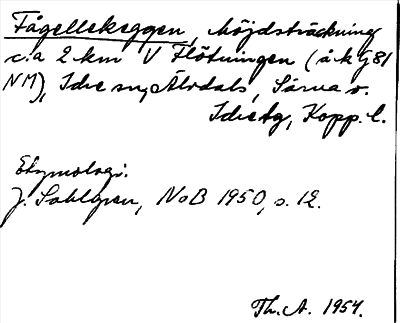 Fågellekeggen, höjdsträckning
c:a 2 km V Flötningen (å-k G 81
NM), Idre sn, Älvdals, Särna o.
Idre tg, Kopp. l.
Etymologi:
J. Sahlgren, NoB 1950, s. 12.
Th. A. 1954.